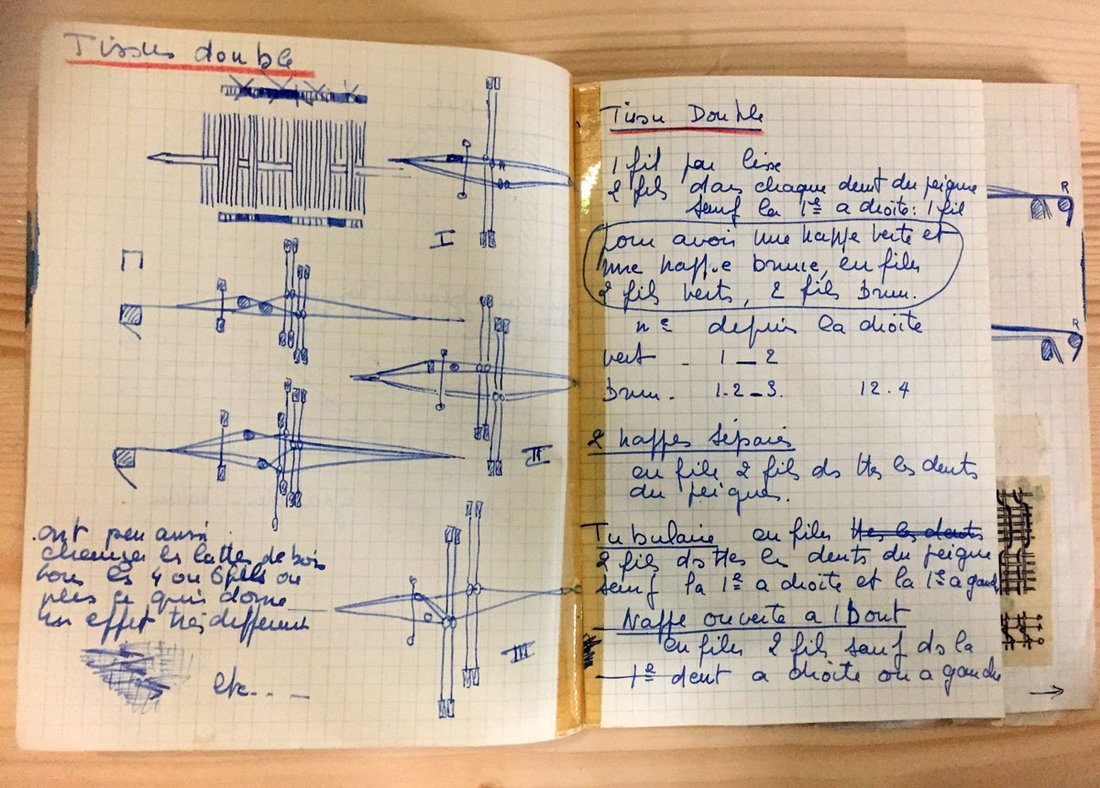 Tissus double
I
II
III
ont peu aussi
changer les lattes de bois
tous les 4 ou 6 fils ou
plus ce qui donne
un effet très different
etc....
Tissu Double
1 fil par lisse
2 fils dans chaque dent du peigne
sauf la 1re a droite: 1 fil
pour avoir une nappe verte et
une nappe brune, enfiler
2 fils verts, 2 fils brun.
n° depuis la droite
vert - 1 - 2
brun. 1.2-3. 12.4
2 nappes séparés
enfile 2 fils ds ttes les dents
du peignes.
Tubulaire enfiler ttes les dents
2 fils ds ttes les dents du peigne
sauf la 1re a droite et la 1re a gauche
Nappe ouverte a 1 Bout
enfiler 2 fils sauf ds la
1re dent a droite ou a gauche
R
R